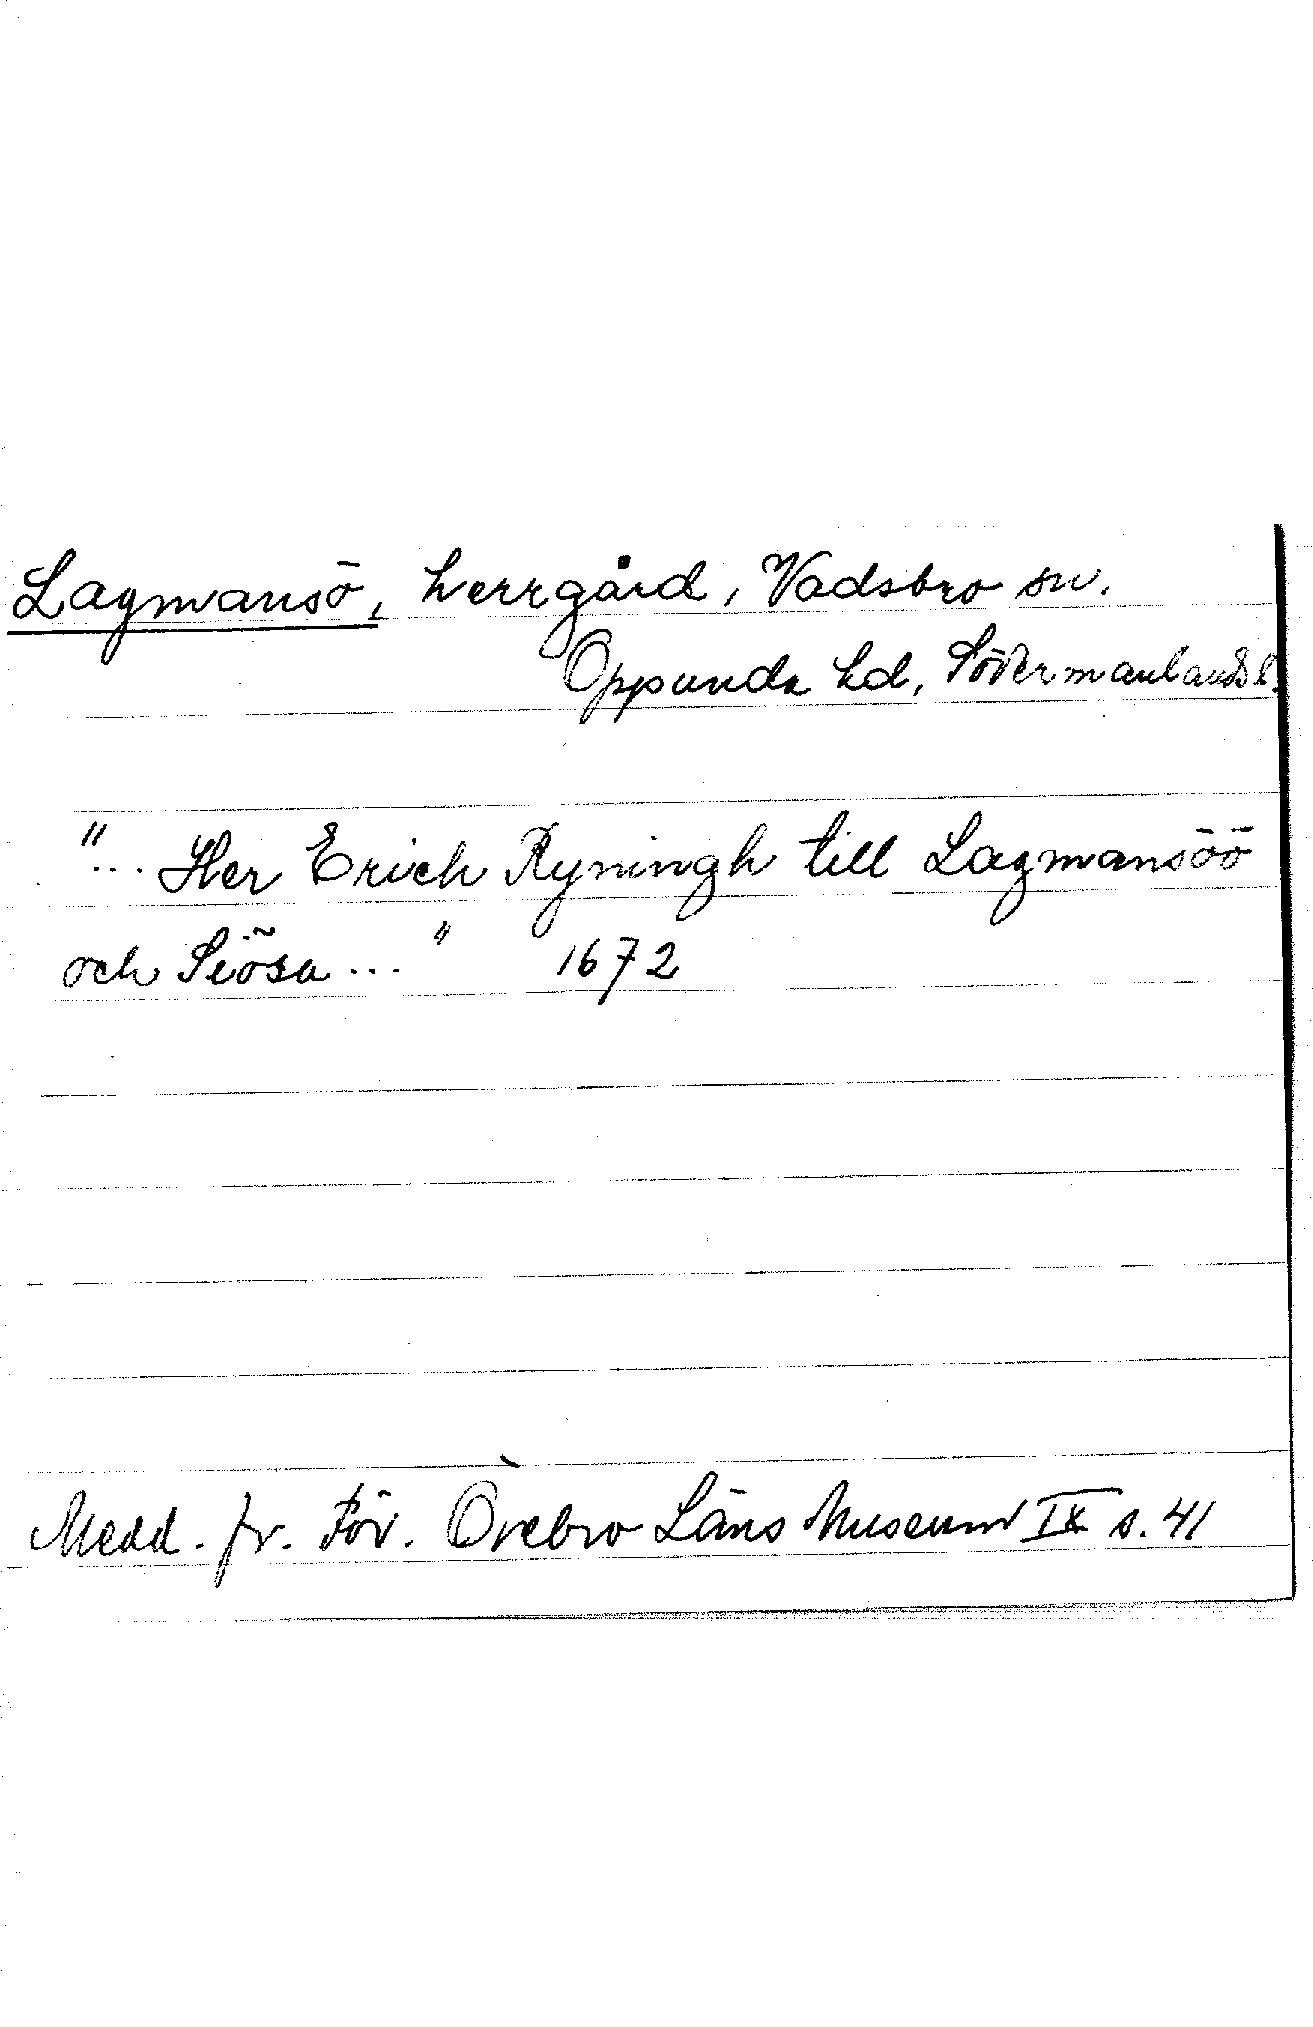 Lagmansö, herrgård, Vadsbro sn.
Oppunda hd, Södermanlands l.
"... Her Erich Ryningh till Lagmansöö
och Siösa ..." 1672
Medd. fr. För. Örebro Läns Museum IX s. 41